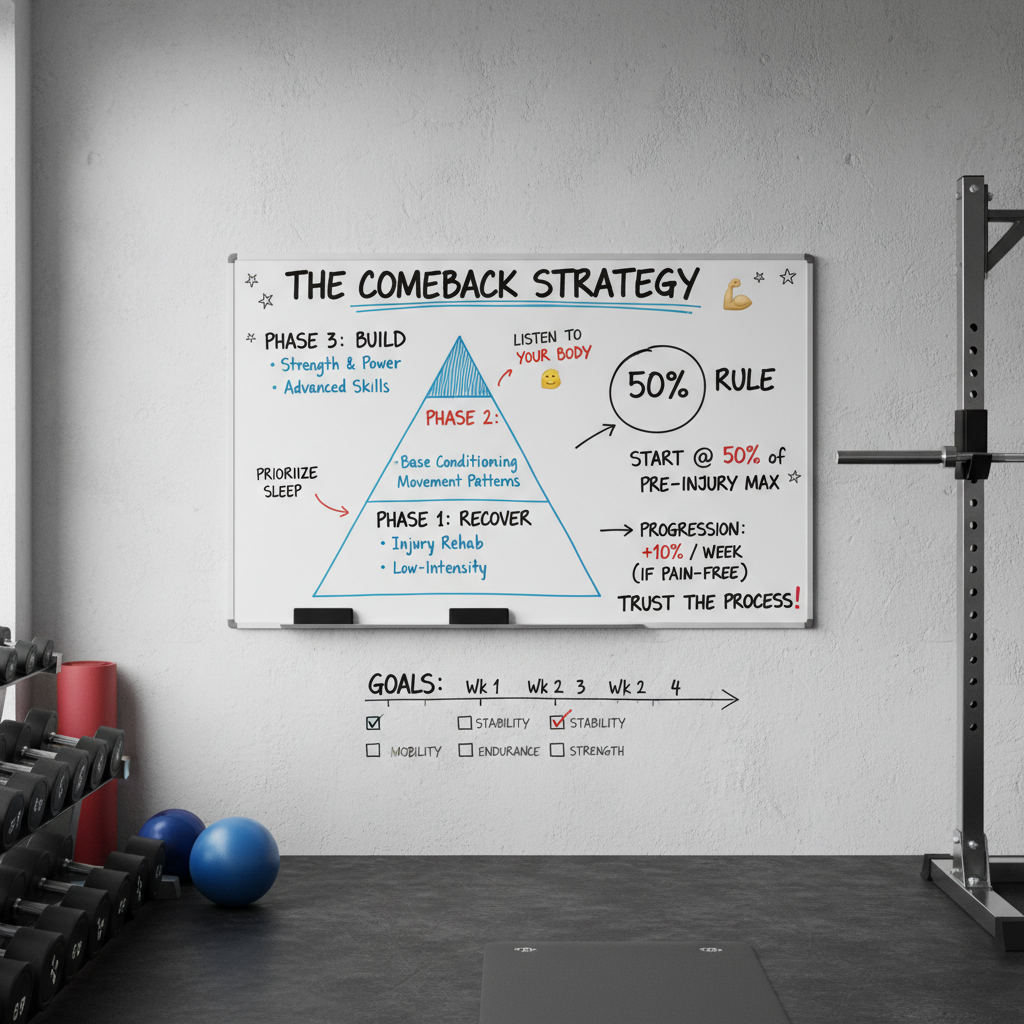 THE COMEBACK STRATEGY
PHASE 3: BUILD
• Strength & Power
• Advanced Skills
LISTEN TO
YOUR BODY
PHASE 2:
Base Conditioning
Movement Patterns
PRIORIIZE
SLEEP
PHASE 1: RECOVER
• Injury Rehab
• Low-Intensity
50% RULE
START @ 50% of
PRE-INJURY MAX
→ PROGRESSION:
+10% / WEEK
(IF PAIN-FREE)
TRUST THE PROCESS!
GOALS: Wk 1 Wk 2 3 Wk 2 4
☑ ☐ STABILITY ☑ STABILITY
☐ MOBILITY ☐ ENDURANCE ☐ STRENGTH